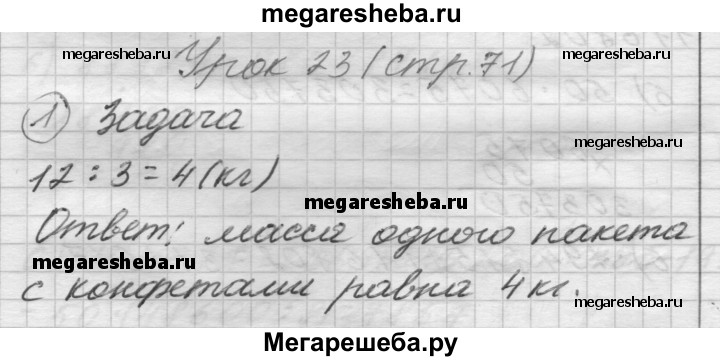 megaresheba.ru
megaresheba.ru megaresheba.ru
Урок 23 (стр. 71)
1) Задача
12 : 3 = 4 (кг)
megaresheba.ru
Ответ: масса одного пакета
megaresheba.ru
с конфетами равна 4 кг.
Мегарешеба.ру